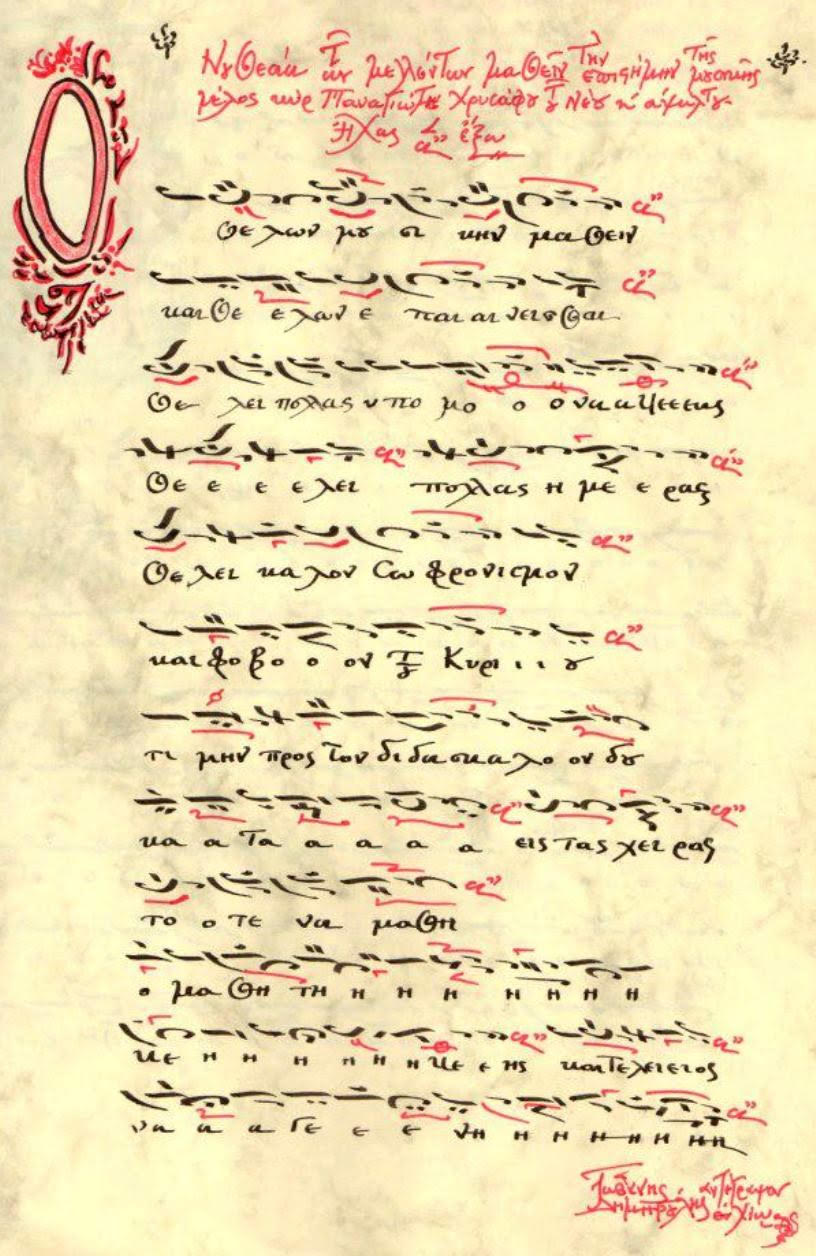 Νουθεσία των μελλόντων μαθείν την επιστήμην της μουσικής
μέλος κυρ Παναγιώτη Χρυσάφου του Νέου κ'
Ήχος α' έξω
Ο
Θε λων μου σι κην μα θειν
και θε ε λων ε παι αι νεισθαι
Θε λει πολλας υ πο μο ο ο νας
Θε ε ε ε λει πολλας η με ε ρας
Θε λει κα λον Σω φρονισμον
και φο βο ο ον του Κυρι ι ι ου
τι μην προς τον διδασκα λο ον δου
κα α τα α α α α εις τας χει ρας
το ο τε να μαθη
ο μα θη τη η η η η η η η
κε η η η η η η κε ε ης και τελειε ι ος
να α α γε ε ε νη η η η η η η η
Ιωάννης αντέγραψον
Δημητρούλης εν Χίω